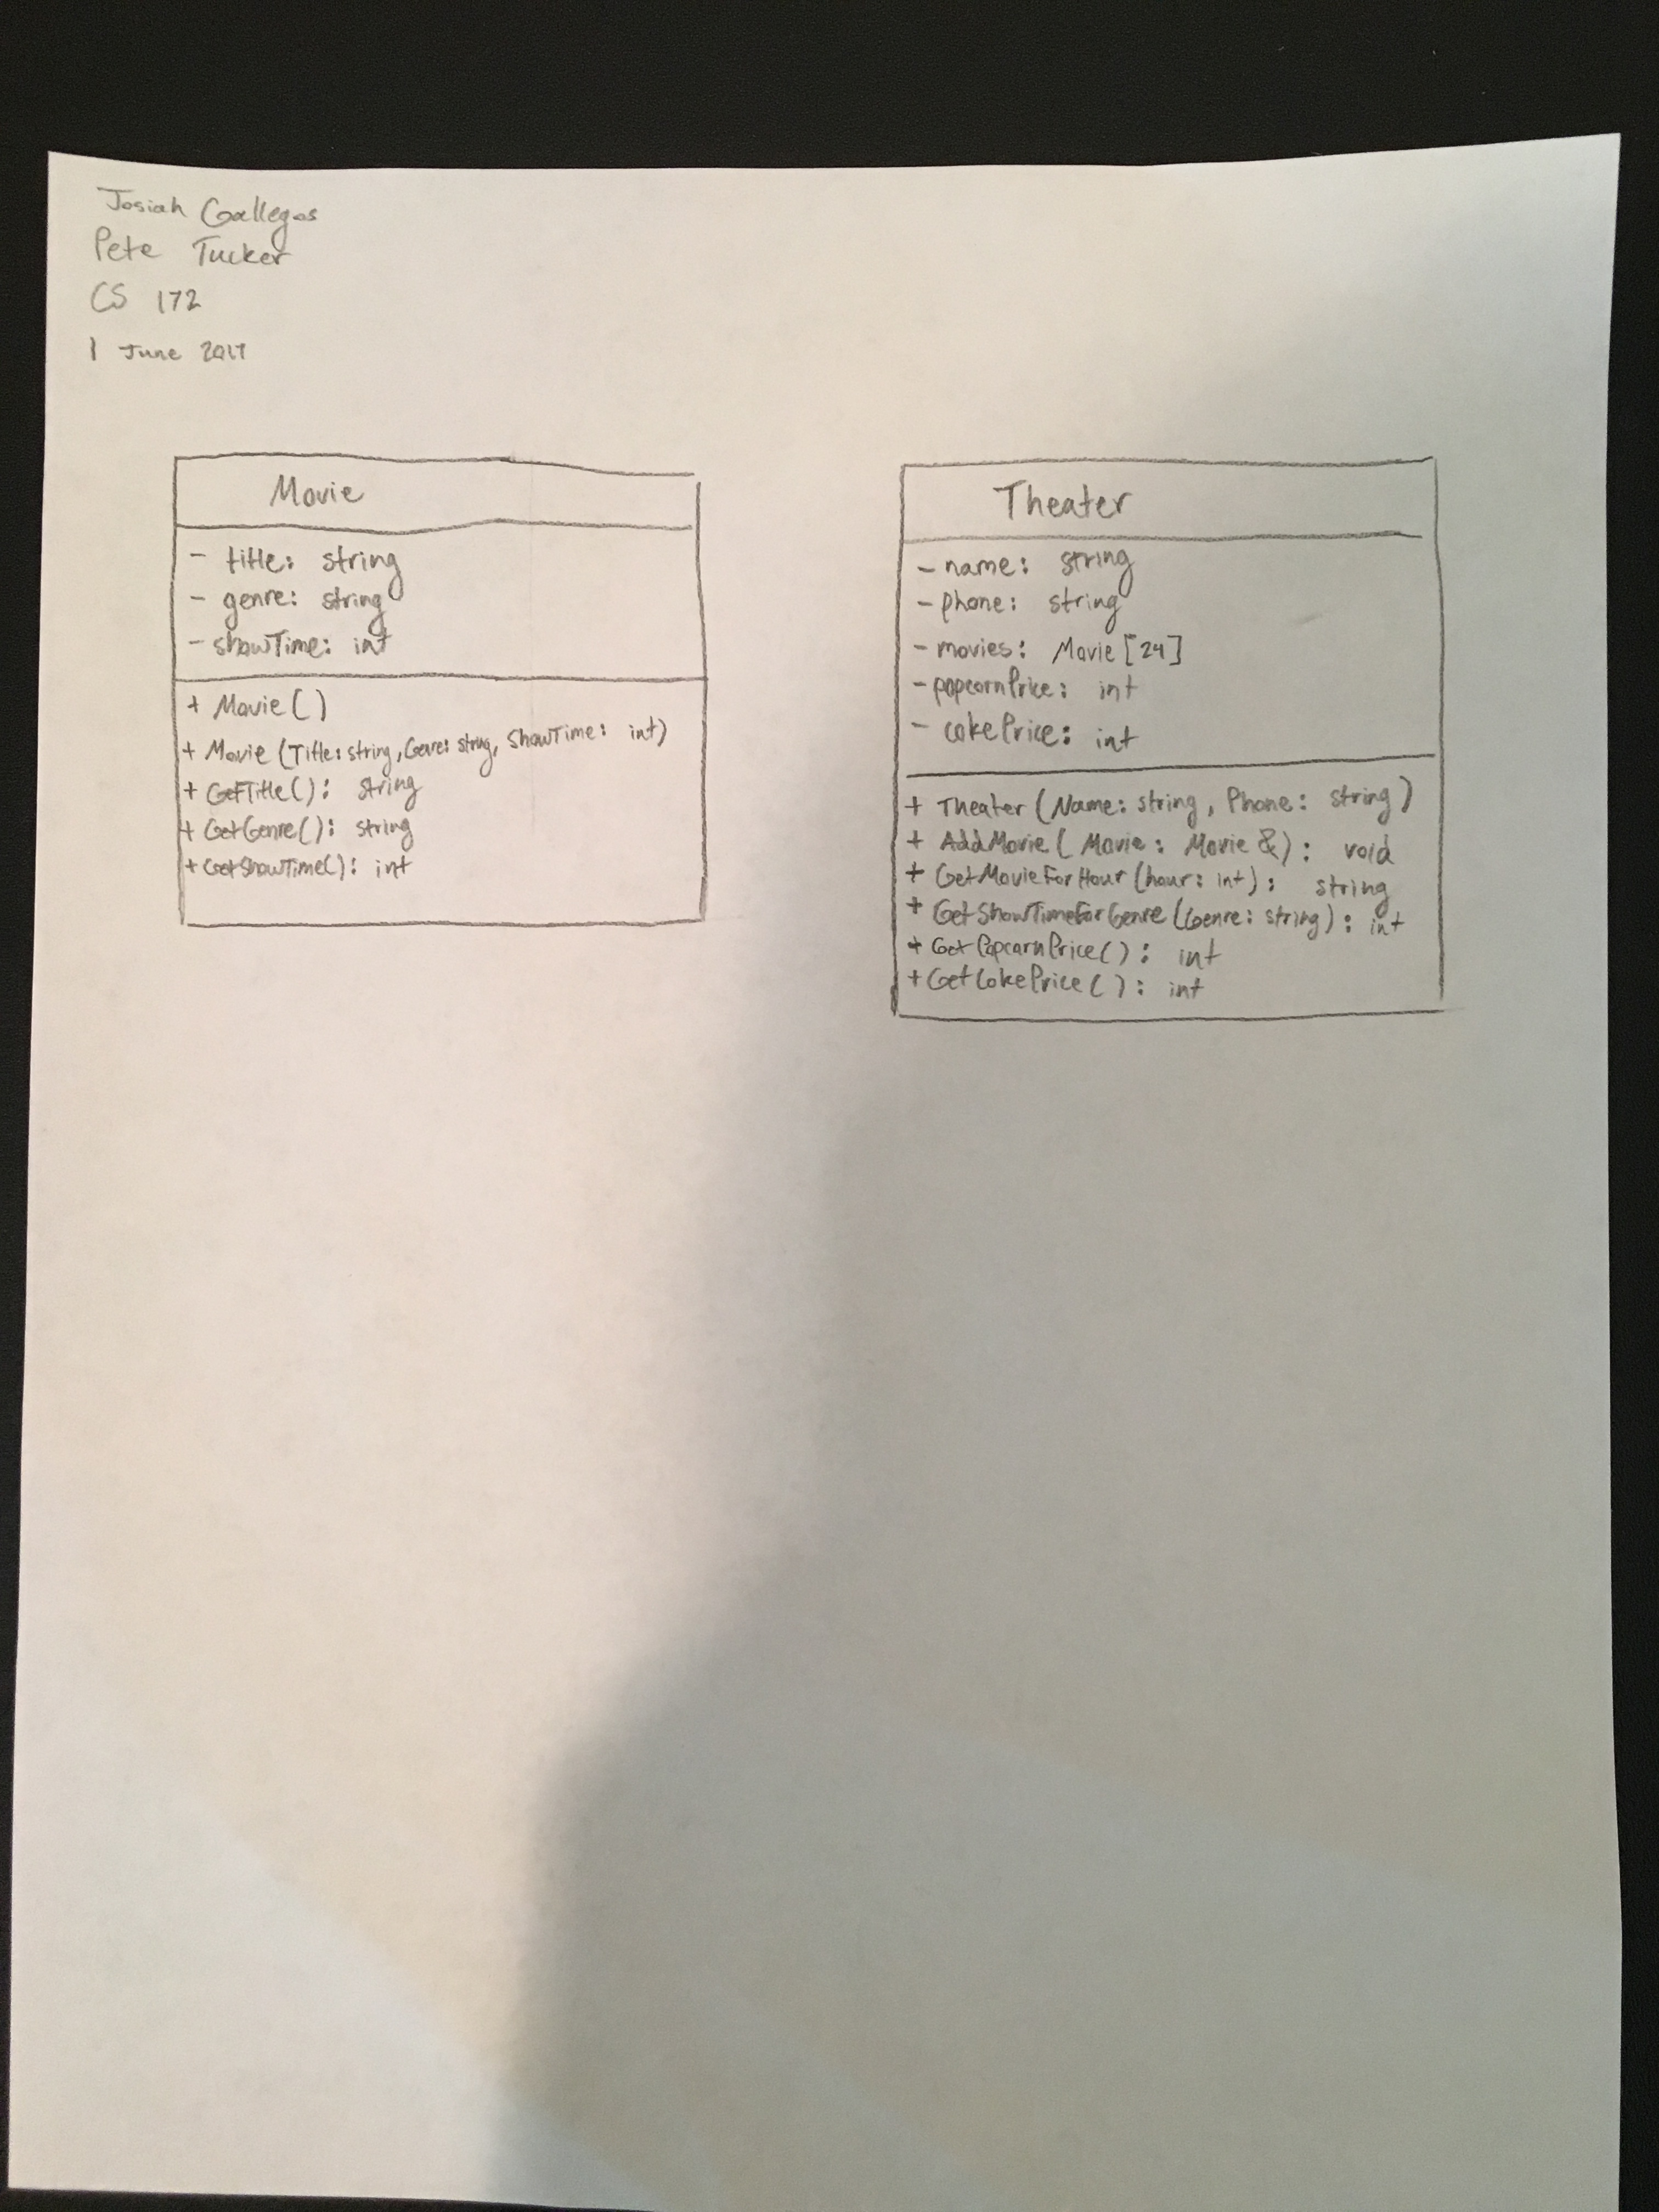 Josiah Gallegos
Pete Tucker
CS 172
1 June 2017
Movie
- title: string
- genre: string
- showTime: int
+ Movie()
+ Movie (Title: string, Genre: string, ShowTime: int)
+ GetTitle(): string
+ GetGenre(): string
+ GetShowTime(): int
Theater
- name: string
- phone: string
- movies: Movie [24]
- popcornPrice: int
- cokePrice: int
+ Theater (Name: string, Phone: string)
+ AddMovie ( Movie: Movie &): void
+ GetMovieForHour (hour: int): string
+ GetShowTimeForGenre (Genre: string): int
+ GetPopcornPrice(): int
+ GetCokePrice(): int